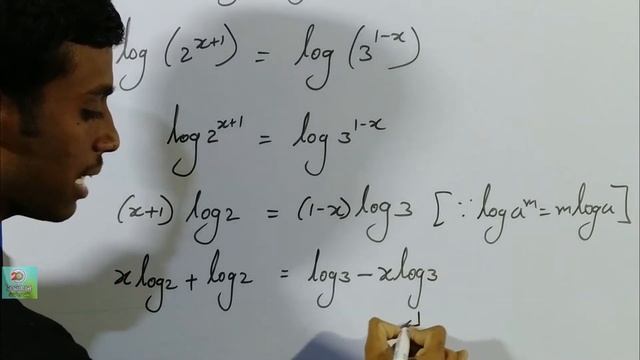 log (2^{x+1}) = log (3^{1-x})
log 2^{x+1} = log 3^{1-x}
(x+1) log 2 = (1-x) log 3 [∵ log a^m = m log a]
x log 2 + log 2 = log 3 - x log 3